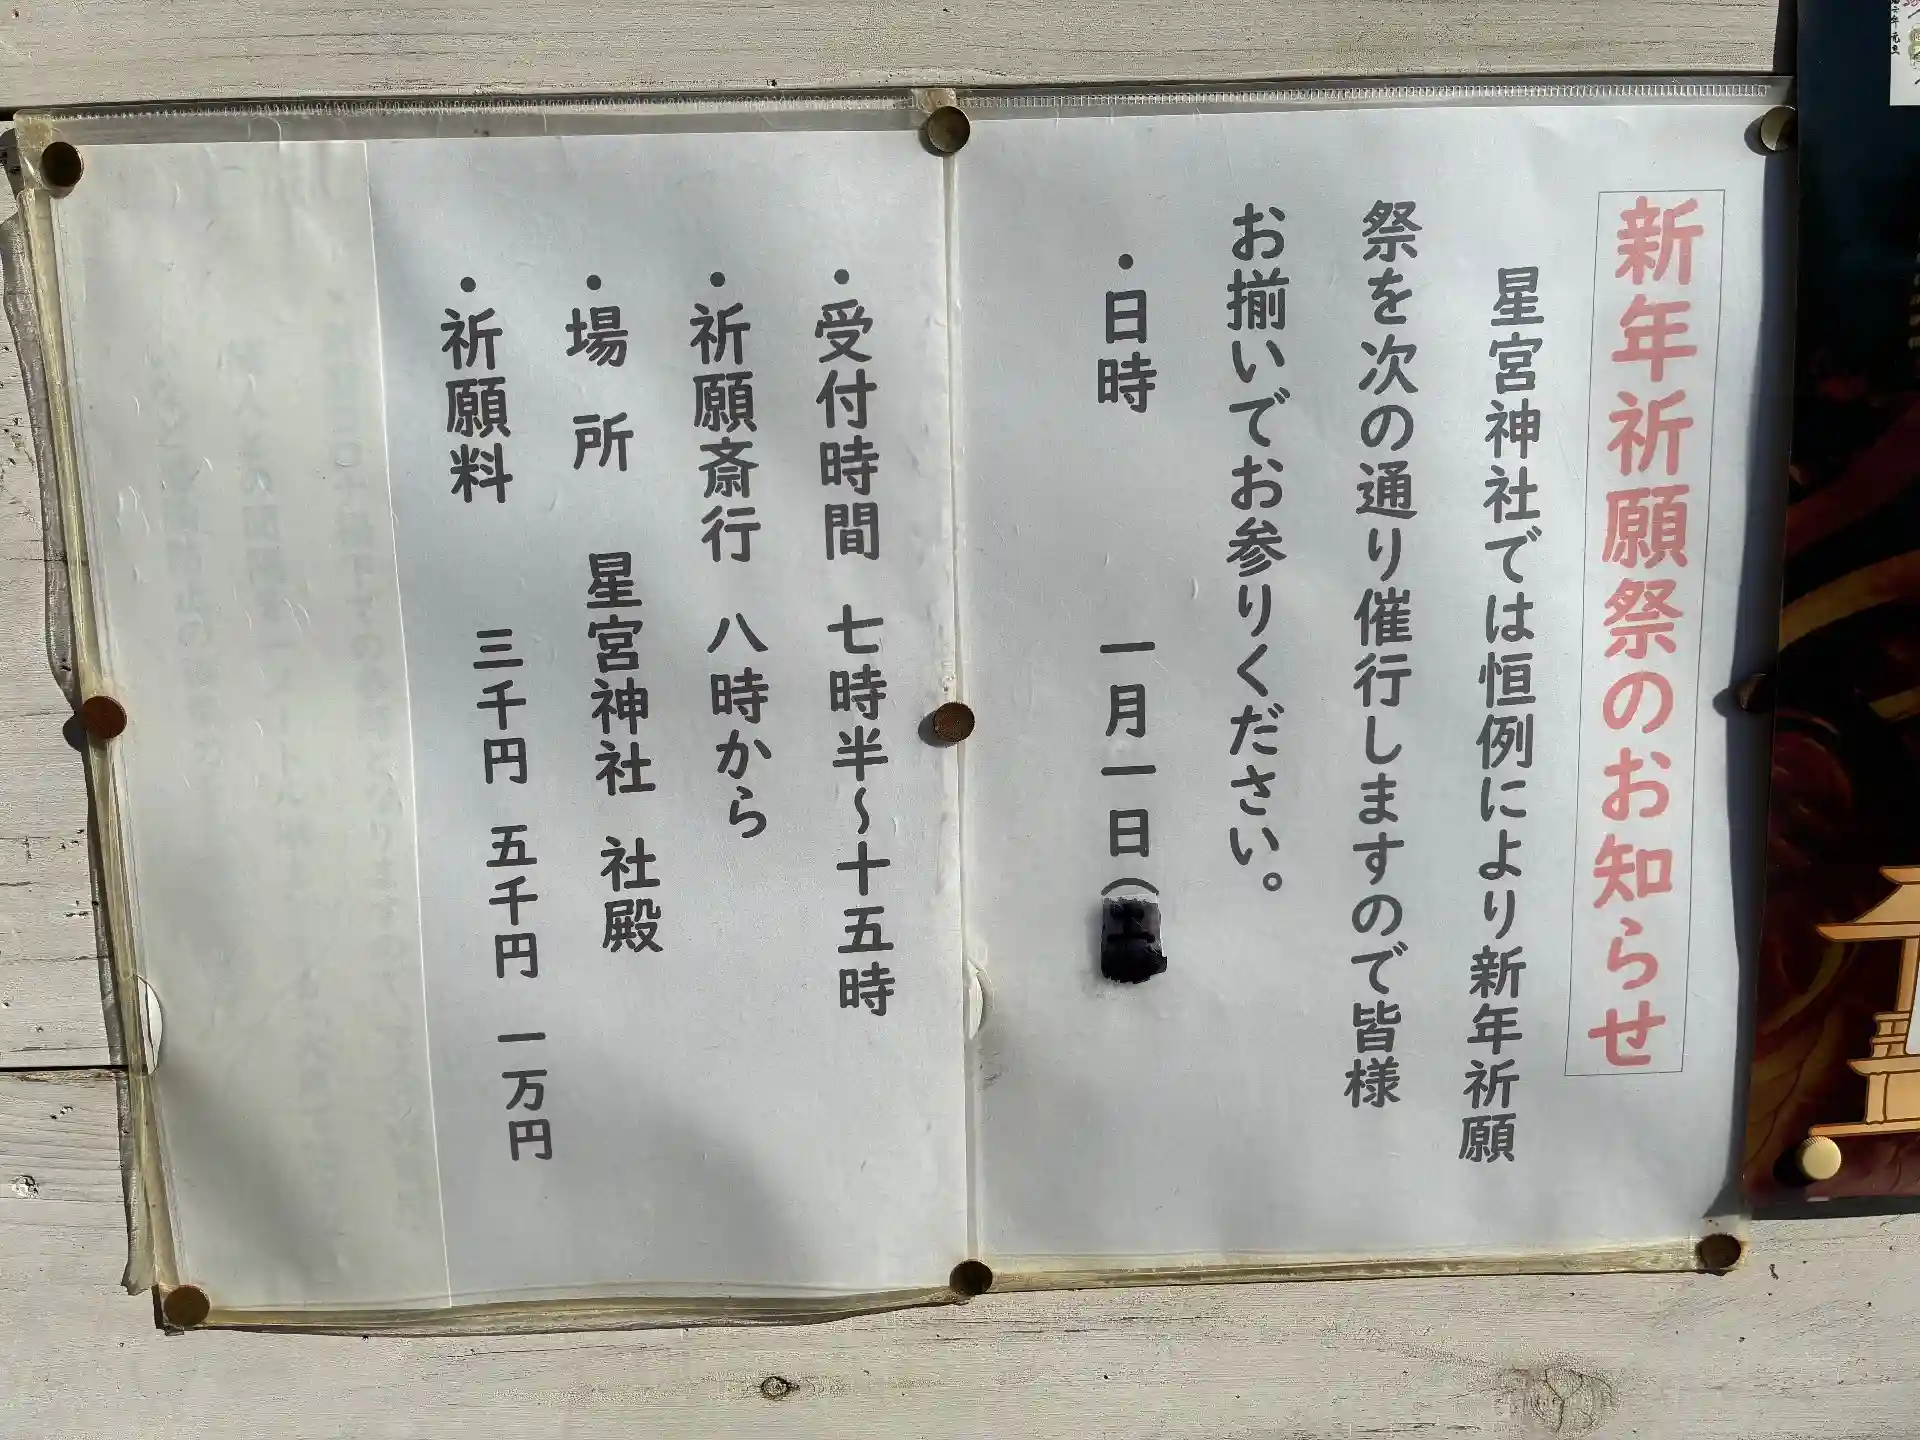 新年祈願祭のお知らせ
星宮神社では恒例により新年祈願
祭を次の通り催行しますので皆様
お揃いでお参りください。
・日時 一月一日（土
・受付時間 七時半～十五時
・祈願斎行 八時から
・場所 星宮神社 社殿
・祈願料 三千円 五千円 一万円